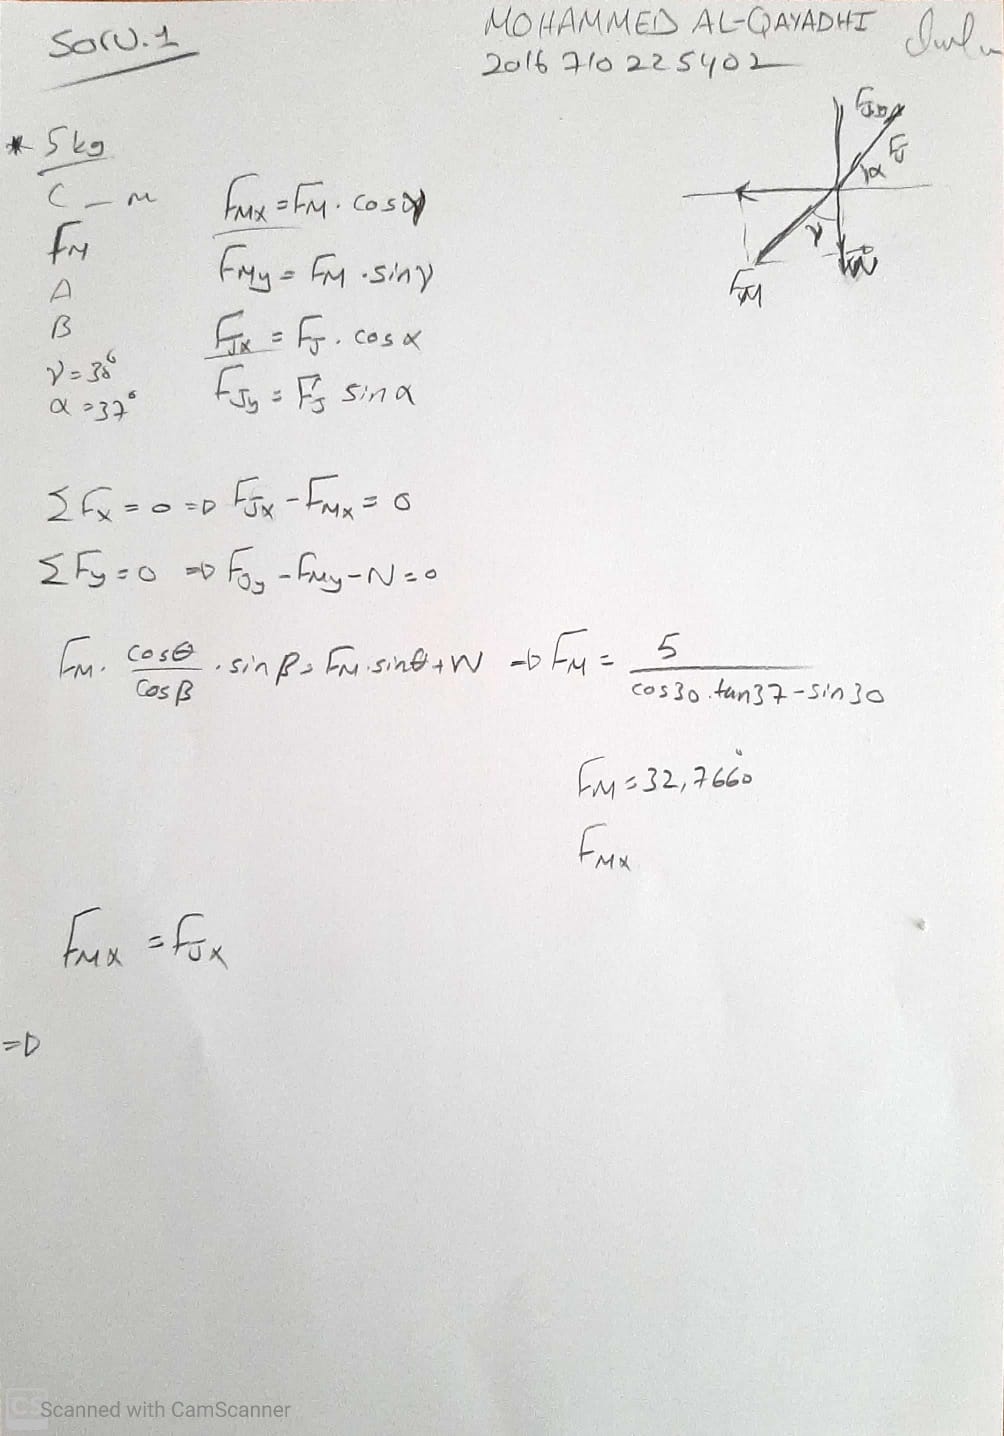 Soru.1
MOHAMMED AL-QAYADHI
2016710225402
* 5kg
C - m
FM
A
B
γ=38°
α=37°
FMX = FM. cosγ
FMy = FM .sinγ
FJX = FJ. cosα
FJy = FJ sinα
FJ
α
γ
FM
W
ΣFX = 0 => FJX - FMX = 0
ΣFy = 0 => FJy - FMy - N = 0
FM. cosθ/cosβ . sinβ = FM.sinθ + W => FM = 5/cos30.tan37-sin30
FM = 32,7660
FMX
FMX = FJX
=>
CS Scanned with CamScanner